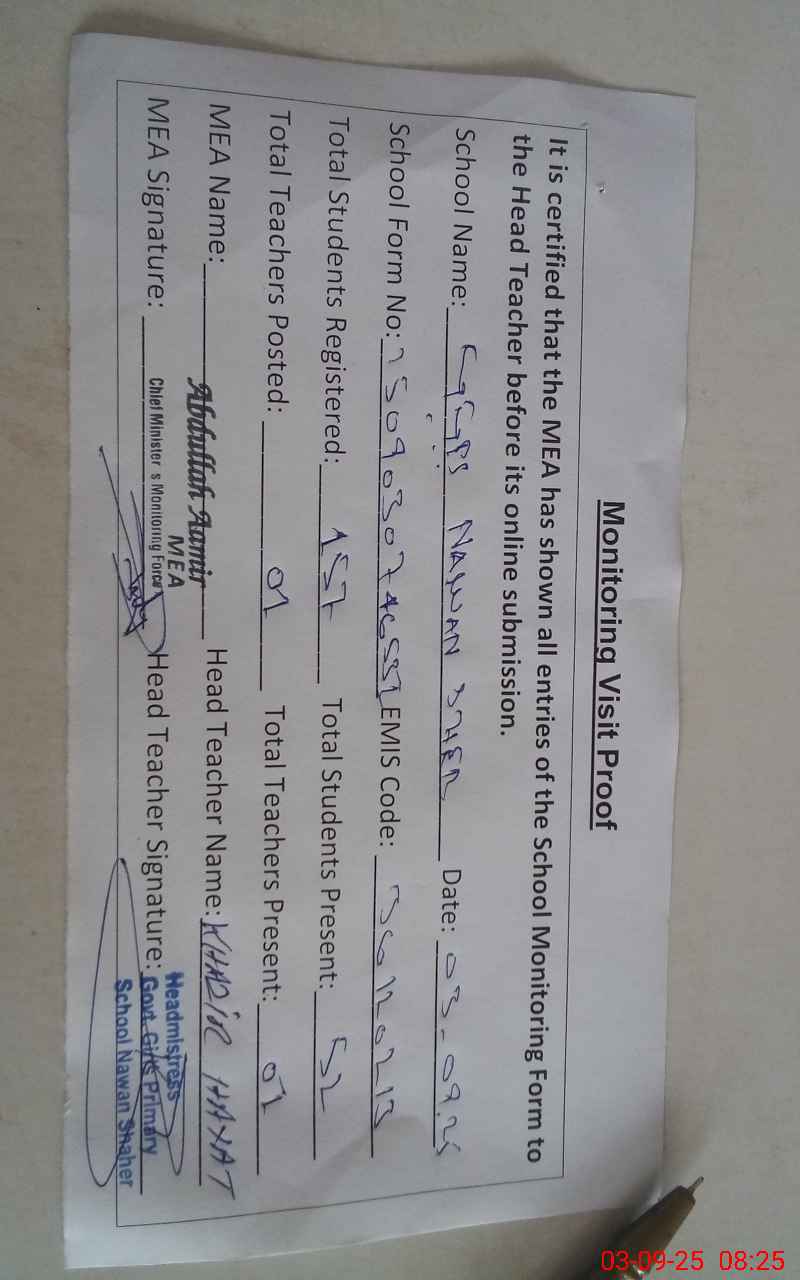 Monitoring Visit Proof
It is certified that the MEA has shown all entries of the School Monitoring Form to
the Head Teacher before its online submission.
School Name: GGPS NAWAN SHER Date: 03-09.25
School Form No: EMIS Code:
Total Students Registered: 157 Total Students Present: 52
Total Teachers Posted: 01 Total Teachers Present: 01
MEA Name: Abdullah Aamir Head Teacher Name: HAYAT
MEA
MEA Signature: Chief Minister s Monitoring Force Head Teacher Signature:
Headmistress
Govt. Girls Primary
School Nawan Shaher
03-09-25 08:25